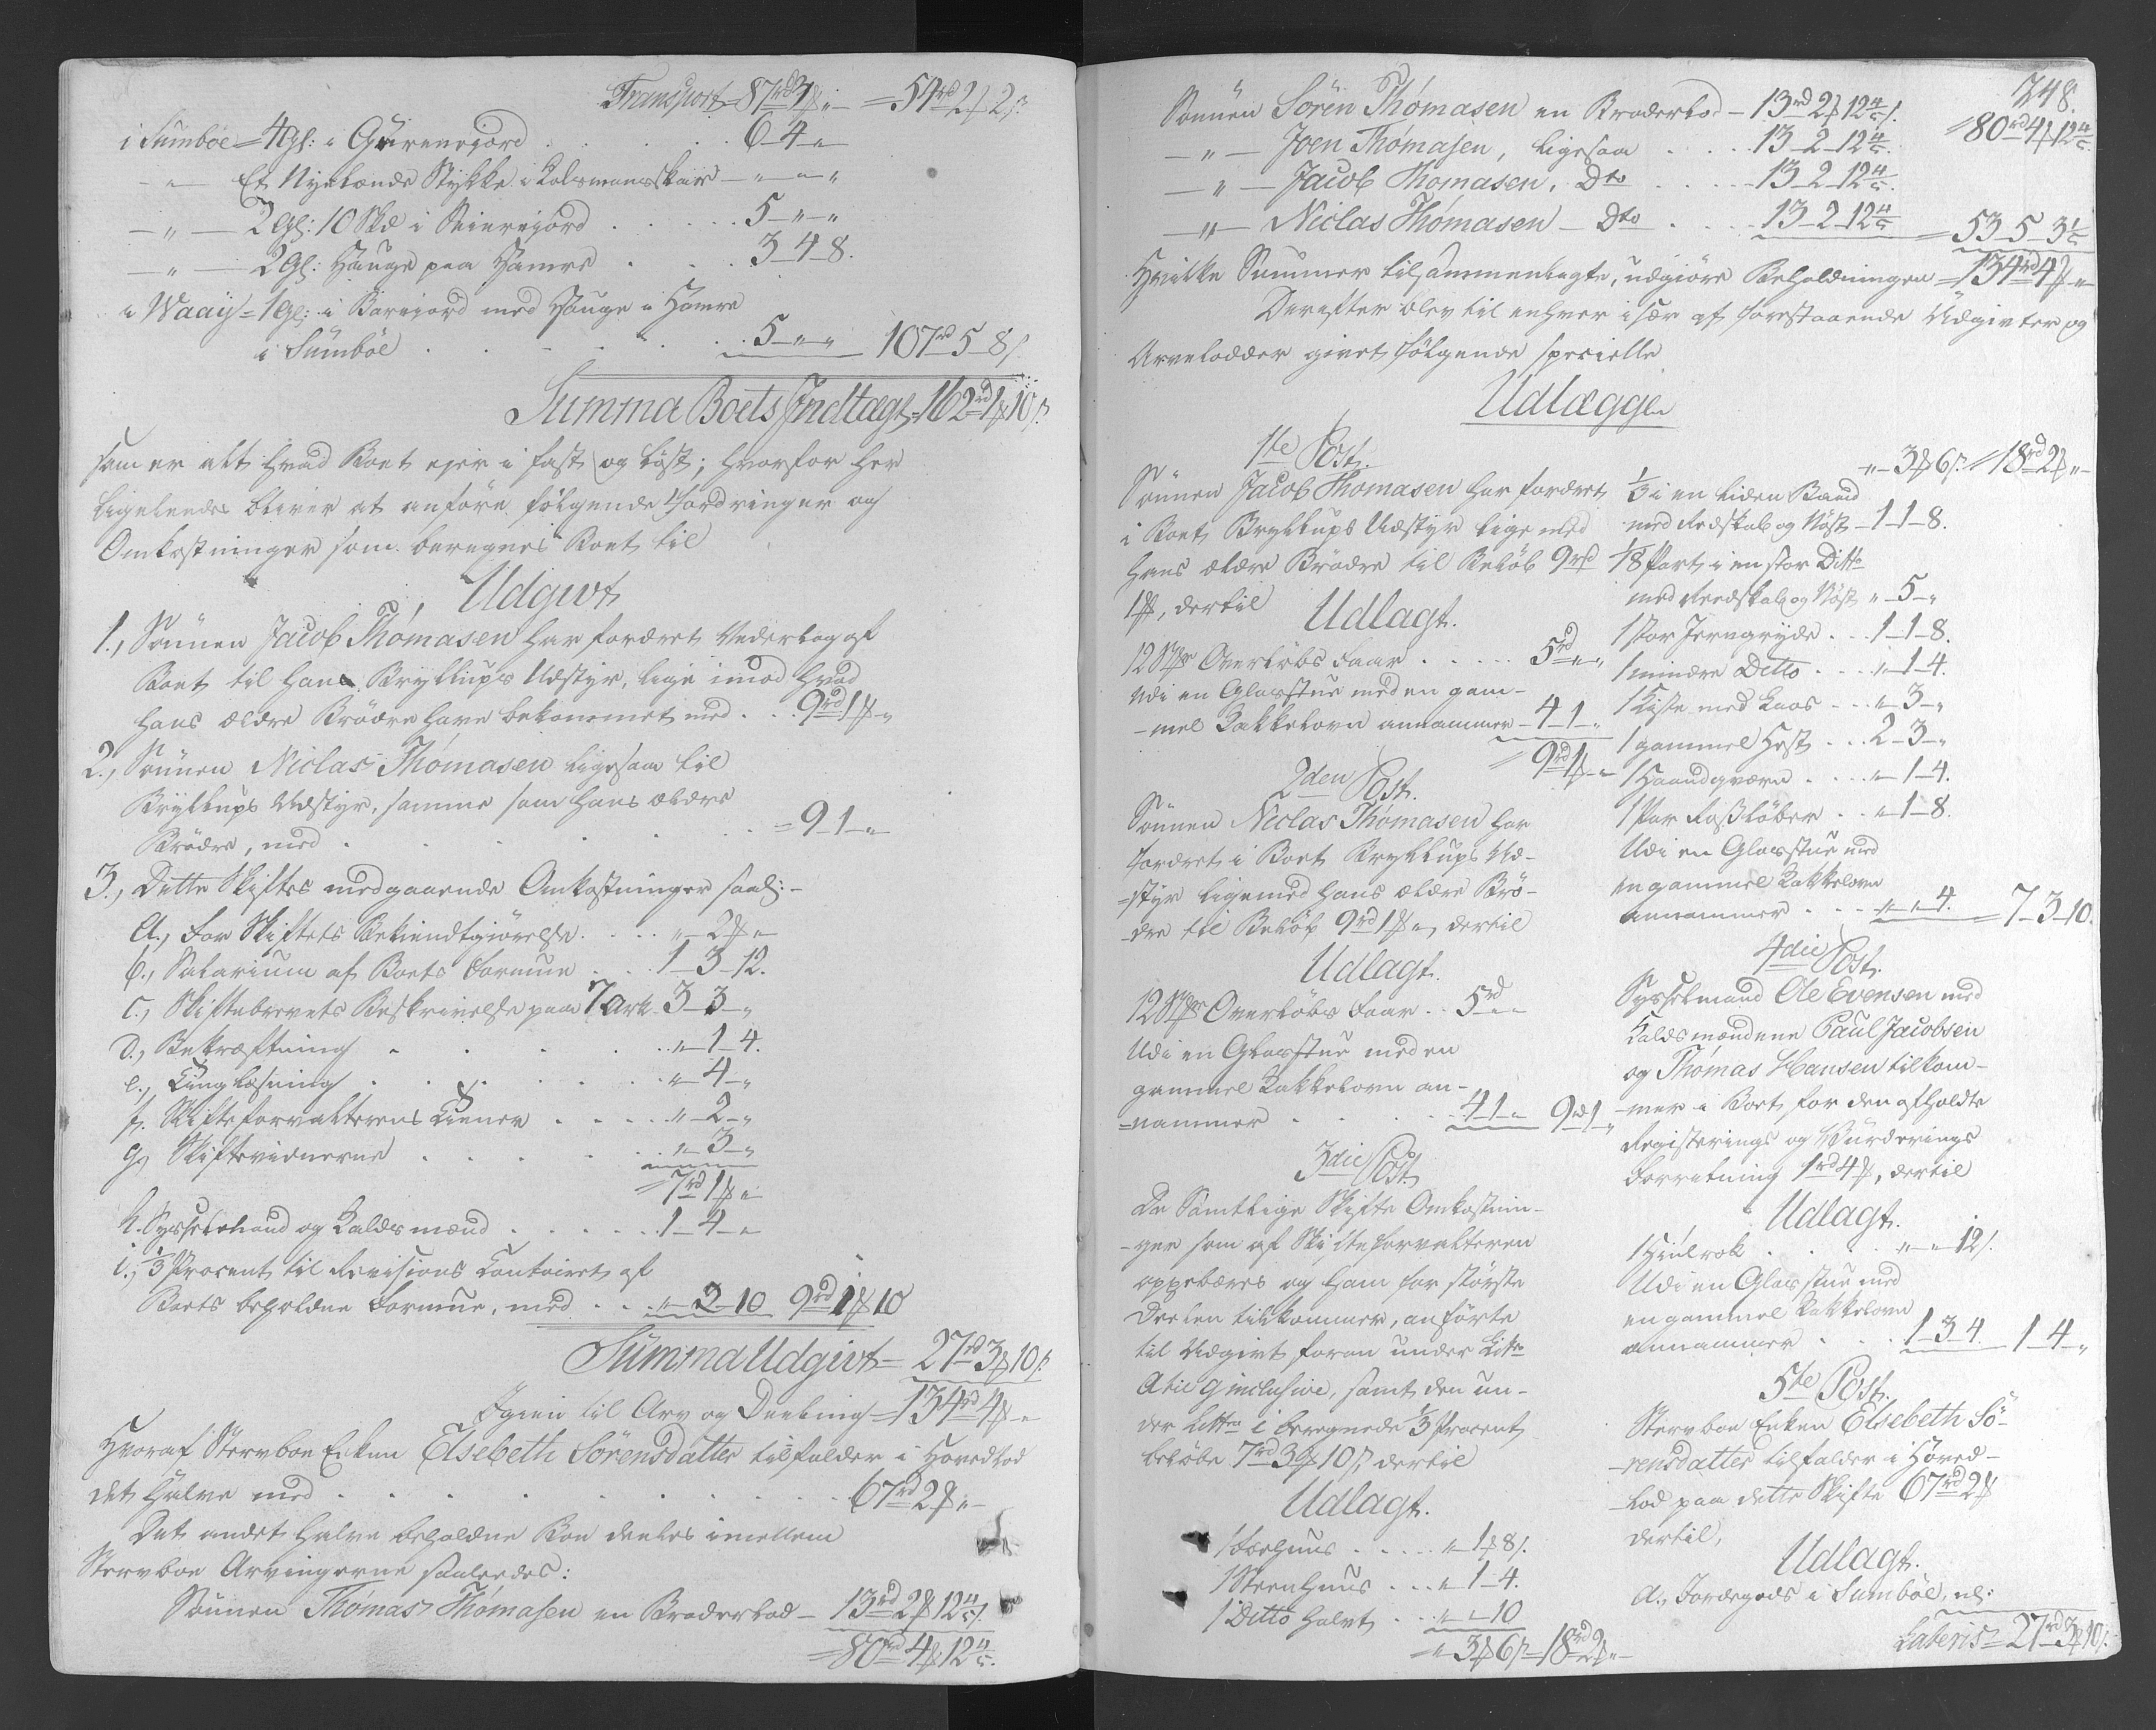 Transport = 87 rd 3 ß „ = 54 rd 2 ß 2 s.
i Sumböe = 4 Gl: i Gürenejord . . . 6 4 „
„ Et Nyelænde Stykke i Kolsmansskair „ „ „
„ 2 Gl: 10 Skd i Neierejord . . . 5 „ „
„ 2 Gl: Hauge paa Hamre . . . 3 4 8.
i Waaij = 1 Gl: i Barejord med Hauge i Hamre
i Sumböe . . . 5 „ „ 107 rd 5 8 s.
Summa Boets Indtægt = 162 rd 1 ß 10 s.
som er alt hvad Boet ejer i fast og löst; hvorfor her
ligeledes bliver at anföre fölgende Fordringer og
Omkostninger som beregnes Boet til
Udgivt
1., Sönnen Jacob Thomasen har fordret Vederlag af
Boet til hans Bryllups Udstyr, lige imod hvad
hans ældre Brödre have bekommet med . . 9 rd 1 ß „
2., Sönnen Niclas Thomasen ligesaa til
Bryllups Udstyr, samme som hans ældre
Brödre, med . . . = 9 1 „
3., Dette Skiftes medgaaende Omkostninger saal: -
a., For Skiftets Bekiendtgiörelse . . . „ 2 ß „
b., Salarium af Boets Formue . . . 1 3 12.
c., Skiftebrevets Beskrivelse paa 7 Ark 3 3 „
d., Bekræftning . . . „ 1 4.
e., Tinglæsning . . . „ 4 „
f. Skifteforvalterens Tiener . . . „ 2 „
g, Skiftevidnerne . . . „ 3 „
= 7 rd 1 ß „
h. Sysselmand og Kaldsmænd . . . 1 4 „
i., 1/3 Procent til Revisions Contoiret af
Boets beholdne Formue, med . . . „ 2 10 9 rd 1 ß 10
Summa Udgivt = 27 rd 3 ß 10 s.
Igien til Arv og Deeling = 134 rd 4 ß „
Hvoraf Stervboe Enken Elsebeth Sörensdatter tilfalder i Hovedlod
det halve med . . . 67 rd 2 ß „
Det andet halve beholdne Boe deeles imellem
Stervboe Arvingerne saaledes:
Sönnen Thomas Thomasen en Broderlod - 13 rd 2 ß 12 4/5 s.
= 80 rd 4 ß 12 4/5.
348.
Sönnen Sören Thomasen en Broderlod - 13 rd 2 ß 12 4/5 s. = 80 rd 4 ß 12 4/5.
„ Joen Thomasen, ligesaa . . . 13 2 12 4/5.
„ Jacob Thomasen, Dto . . . 13 2 12 4/5.
„ Niclas Thomasen - Dto . . . 13 2 12 4/5 = 53 5 3 1/5
Hvilke Summer tilsammenlagte, udgiöre Beholdningen = 134 rd 4 ß „
Derefter blev til enhver især af forestaaende Udgivter og
Arvelodder givet fölgende specielle
Udlægge
1ste Post.
Sönnen Jacob Thomasen har fordret
i Boet Bryllups Udstyr lige med
hans ældre Brödre til Belöb 9 rd
1 ß, dertil
Udlagt.
12 Stkr Overlöbs Faar . . . 5 rd „ „
Udi en Glasstue med en gam-
-mel Kakkelovn annammer - 4 1 „
= 9 rd 1 ß „
2den Post.
Sönnen Niclas Thomasen har
fordret i Boet Bryllups Ud-
-styr ligemed hans ældre Brö-
-dre til Belöb 9 rd 1 ß „, dertil
Udlagt.
12 Stkr Overlöbs Faar . . 5 rd „ „
Udi en Glasstue med en
gammel Kakkelovn an-
-nammer . . . 4 1 „ 9 rd 1 „
3die Post
De Samtlige Skifte Omkostnin-
-ger som af Skifteforvalteren
oppebæres og ham for störste
Deelen tilkommer, anförte
til Udgivt foran under Litr
a til g inclusive, samt den un-
der Littra i beregnede 1/3 Procent
belöbe 7 rd 3 ß 10 s, dertil
Udlagt.
1 Foehuus . . . „ 1 ß 8 s.
1 Steenhuus . . . „ 1 4.
1 Ditto halvt . . . „ „ 10
„ 3 ß 6 s = 18 rd 2 ß „
„ 3 ß 6 s = 18 rd 2 ß „
1/3 i en liden Baad
med Redskab og Nöst - 1 1 8.
1/8 Part i en stor Ditto
med Reedskab og Nöst „ 5 „
1 stor Jerngryde . . 1 1 8.
1 mindre Ditto . . . „ 1 4.
1 Kiste med Laas . . „ 3 „
1 gammel Hest . . . 2 3 „
1 Haandqværn . . . „ 1 4.
1 Par Roßlöber . . „ 1 8.
Udi en Glasstue med
en gammel Kakkelovn
annammer . . . „ „ 4. = 7 3 10.
4die Post.
Sysselmand Ole Evensen med
Kaldsmændene Paul Jacobsen
og Thomas Hansen tilkom-
-mer i Boet for den afholdte
Registerings og Vürderings
Forretning 1 rd 4 ß, dertil
Udlagt.
1 Hiulrok . . . „ „ 12 s.
Udi en Glasstue med
en gammel Kakkelovn
annammer . . . 1 3 4. 1 4 „
5te Post.
Stervboe Enken Elsebeth Sö-
-rensdatter tilfalder i Hoved-
-lod paa dette Skifte 67 rd 2 ß
dertil,
Udlagt.
a., Jordegods i Sumböe, nl:
Lateris = 27 rd 3 ß 10 s.